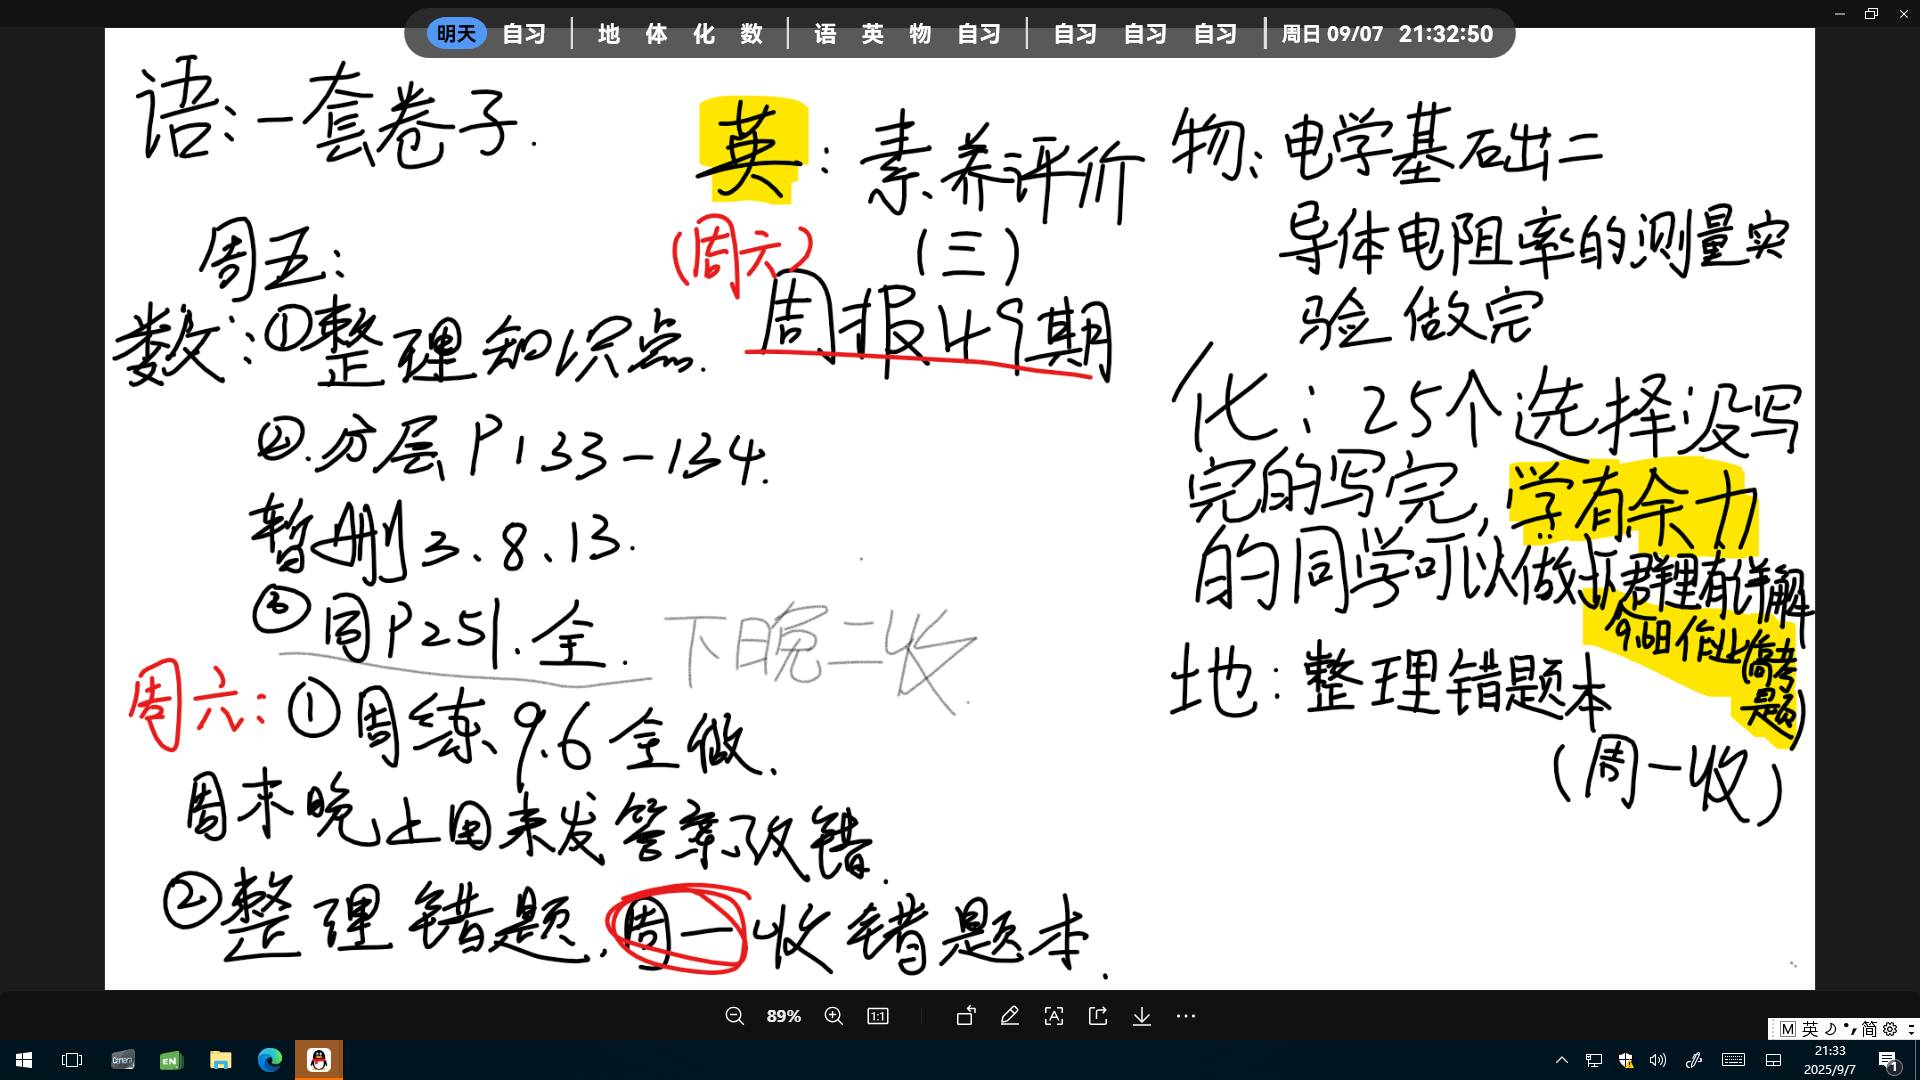 明天 自习 | 地 体 化 数 | 语 英 物 自习 | 自习 自习 自习 | 周日 09/07 21:32:50
语:一套卷子.
周五:
数:①整理知识点.
②.分层P133-134.
暂删3、8、13.
③同P251.全.
下日晚二收.
周六:①周练9.6全做.
周末晚上回来发答案改错.
②整理错题.周一收错题本.
英:素养评价
(三)
(周六)
周报49期
物:电学基础二
导体电阻率的测量实
验做完
化:25个选择没写
完的写完,学有余力
的同学可以做下群里有详解
9.6日作业(高考
题)
地:整理错题本
(周一收)
89%
1:1
M 英 简
Camera
EN
21:33
2025/9/7
1